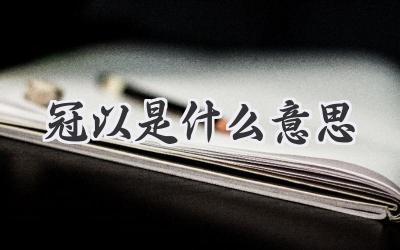 冠以是什么意思